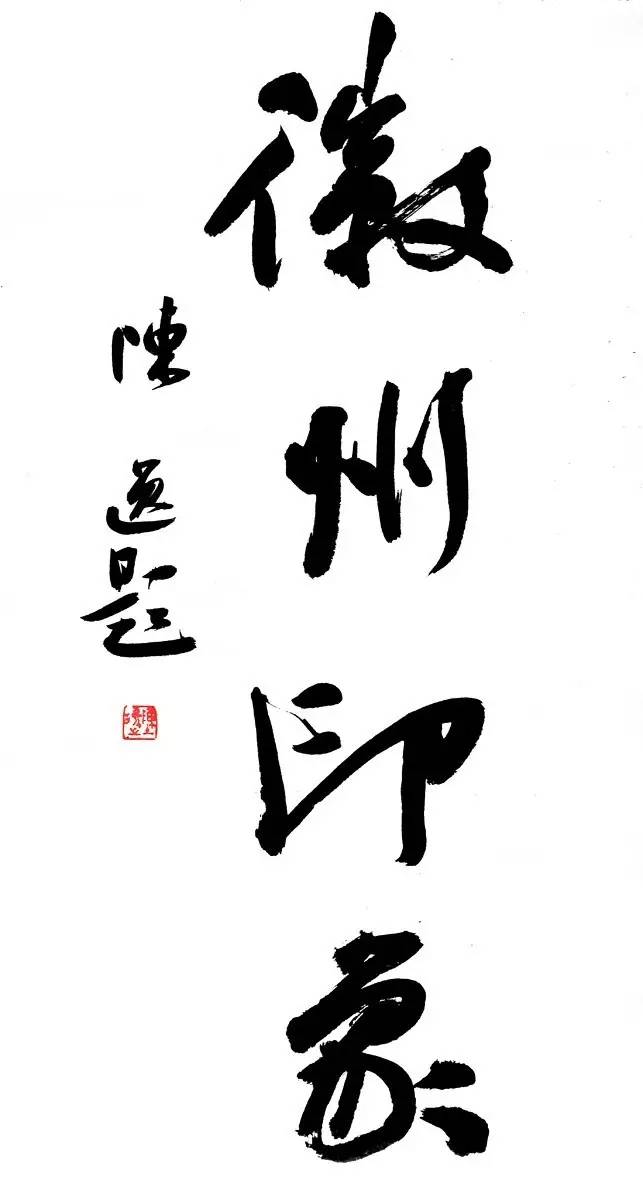 徽州印象
陳逸題